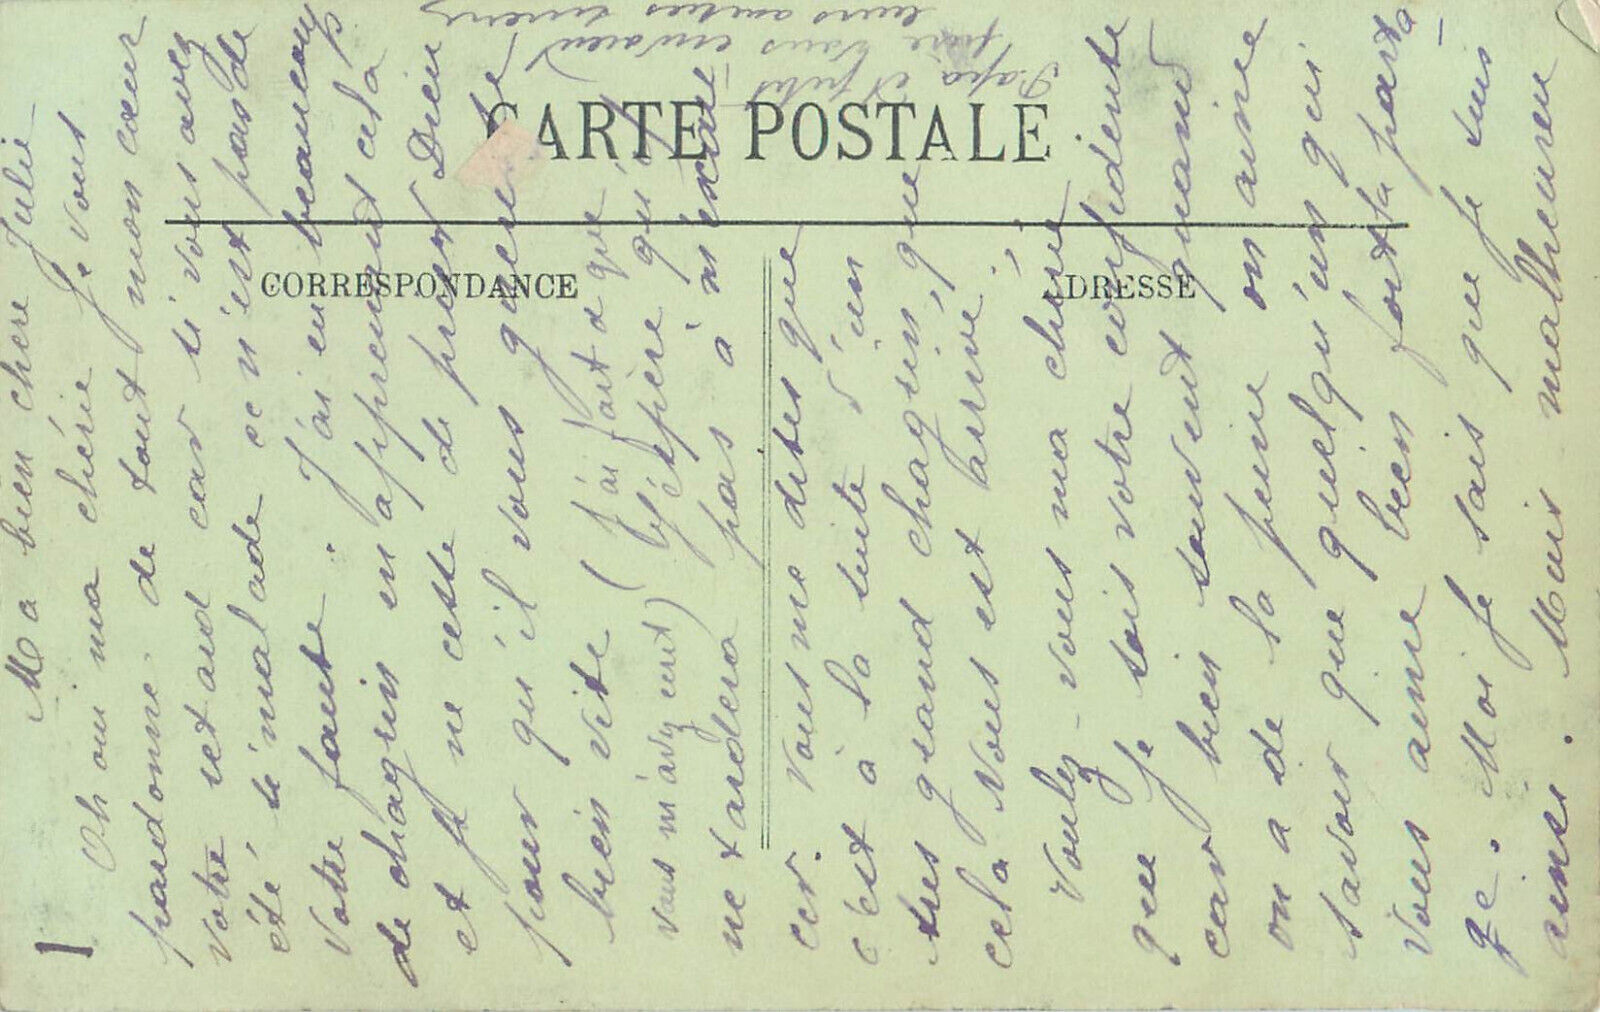 CARTE POSTALE
CORRESPONDANCE
ADRESSE
1
Ma bien chere Julie
Oh oui ma chérie Je vous
pardonne de tout mon cœur
votre retard car si vous avez
été si malade ce n'est pas de
votre faute. J'ai eu beaucoup
de chagrin en apprenant cela
et je ne cesse de prier Dieu
pour qu'il vous guerisse
bien vite (j'ai fait ce que
vous m'avez dit) J'espère qu'il
ne tardera pas à m'exau
cer. Vous me dites que
c'est à la suite d'un
tres grand chagrin, que
cela vous est arrivé.
Voulez-vous ma chere
que je sois votre confidente
car bien souvent quand
on a de la peine on aime
savoir que quelqu'un qui
vous aime bien fort la parta-
ge. Moi je sais que je suis
ainsi. Mais malheureu
Papa et
père vous envoient
leurs amities